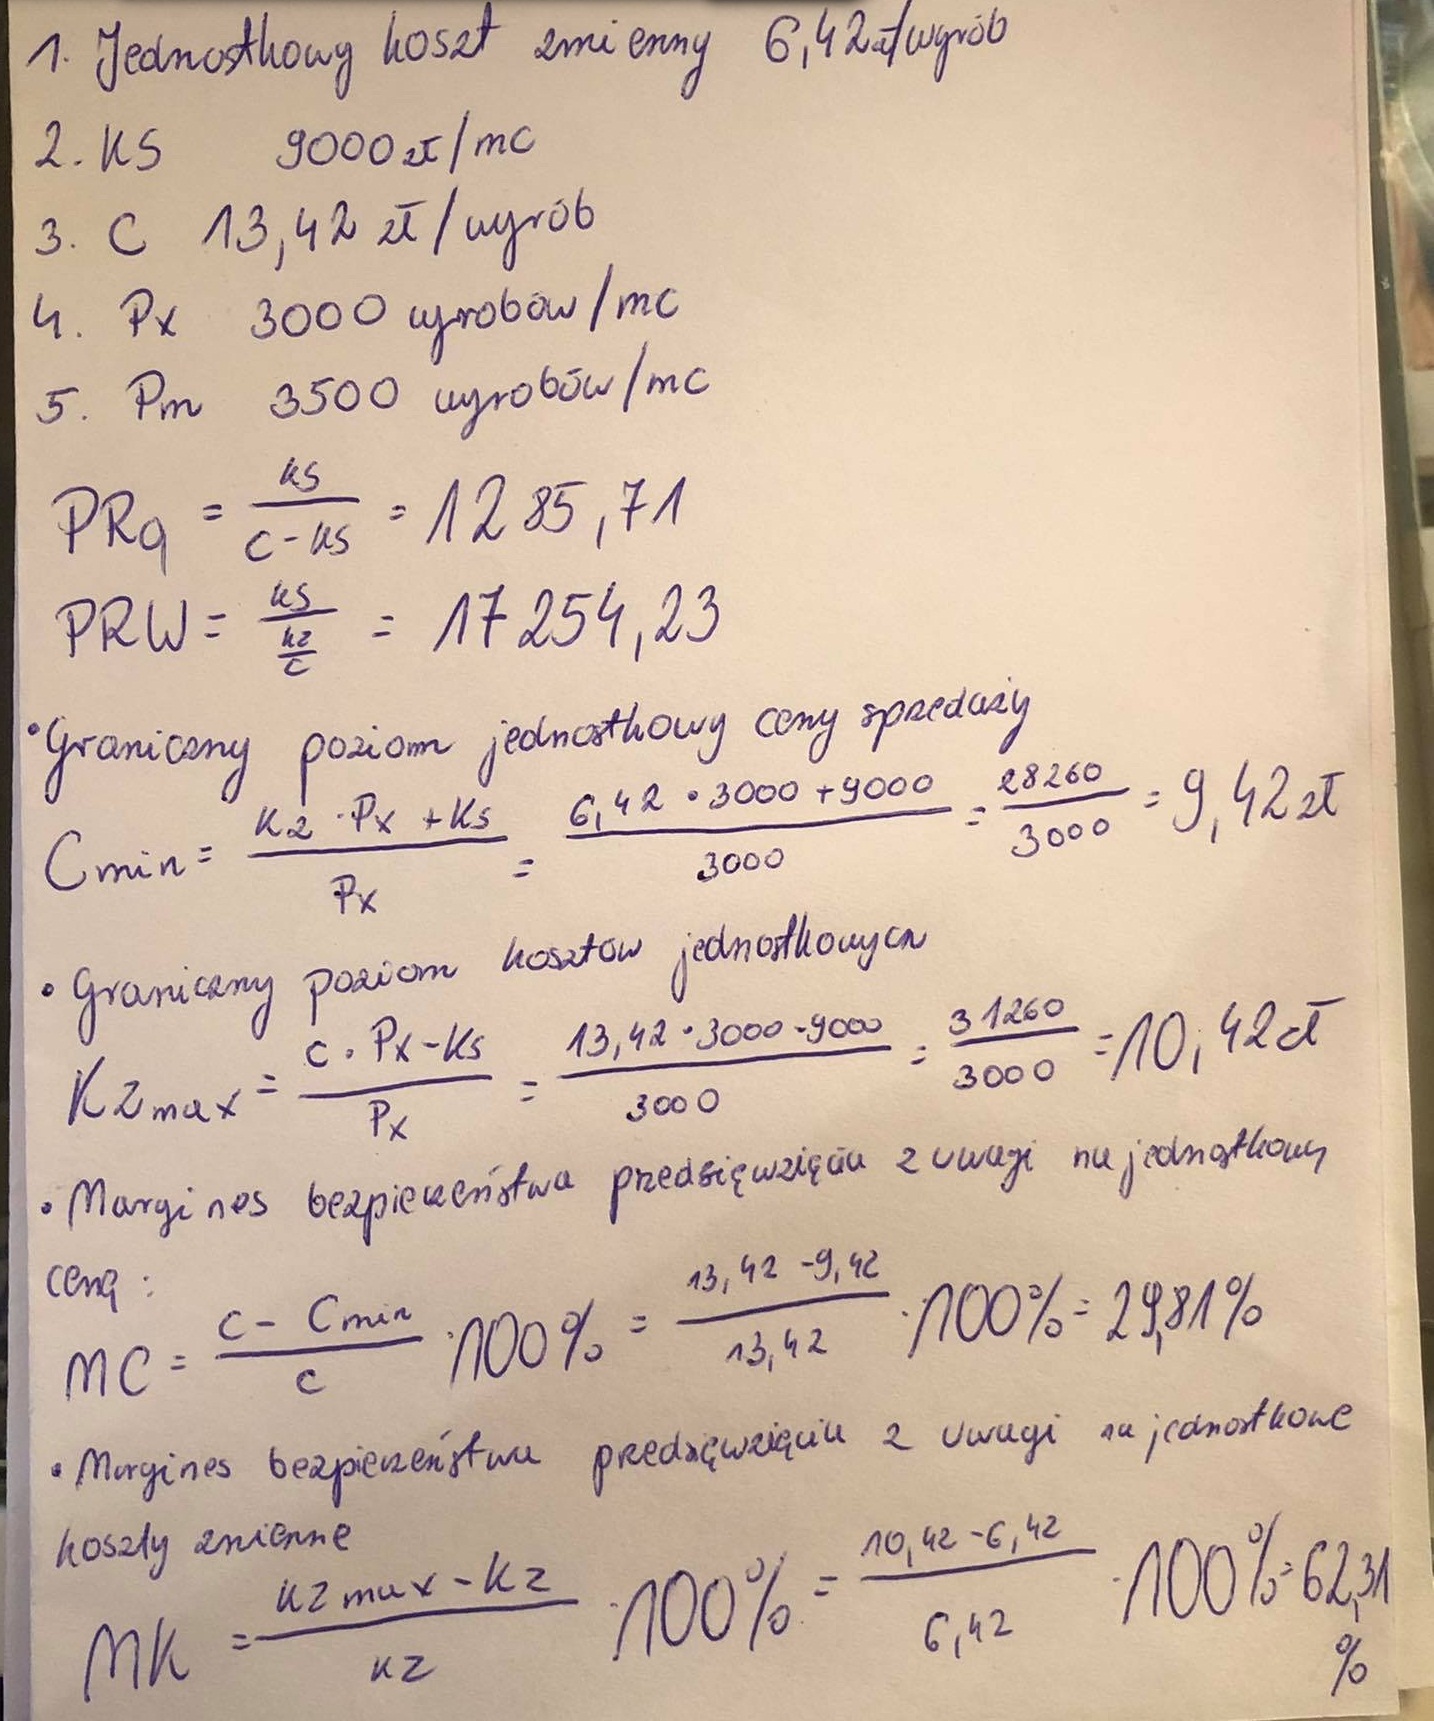 1. Jednostkowy koszt zmienny 6,42 zł/wyrób
2. KS 9000 zł/mc
3. C 13,42 zł/wyrób
4. Px 3000 wyrobów/mc
5. Pm 3500 wyrobów/mc
PRq = KS / C-KS = 1285,71
PRW = KS / KZ/C = 17 254,23
• Graniczny poziom jednostkowy ceny sprzedaży
Cmin = Kz · Px + Ks / Px = 6,42 · 3000 + 9000 / 3000 = 28260 / 3000 = 9,42 zł
• Graniczny poziom kosztów jednostkowych
KZmax = C · Px - Ks / Px = 13,42 · 3000 - 9000 / 3000 = 31260 / 3000 = 10,42 zł
• Margines bezpieczeństwa przedsięwzięcia z uwagi na jednostkową
cenę:
MC = C - Cmin / C · 100% = 13,42 - 9,42 / 13,42 · 100% = 29,81%
• Margines bezpieczeństwa przedsięwzięcia z uwagi na jednostkowe
koszty zmienne
MK = KZmax - KZ / KZ · 100% = 10,42 - 6,42 / 6,42 · 100% = 62,31
%